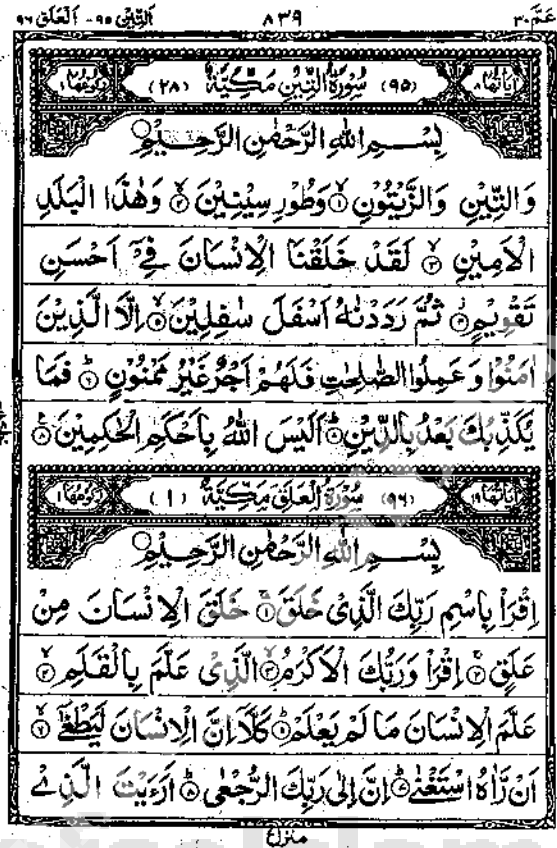 عمّ ٣٠ ٨٣٩ اَلتِّيْن ٩٥ - اَلْعَلَق ٩٦
اٰيَاتُهَا ٨ (٩٥) سُوْرَةُ التِّيْنِ مَكِّيَّةٌ (٢٨) رُكُوْعُهَا ١
بِسْمِ اللّٰهِ الرَّحْمٰنِ الرَّحِيْمِ
وَالتِّيْنِ وَالزَّيْتُوْنِ ۙ﴿١﴾ وَطُوْرِ سِيْنِيْنَ ۙ﴿٢﴾ وَهٰذَا الْبَلَدِ
الْاَمِيْنِ ۙ﴿٣﴾ لَقَدْ خَلَقْنَا الْاِنْسَانَ فِيْٓ اَحْسَنِ
تَقْوِيْمٍ ۫﴿٤﴾ ثُمَّ رَدَدْنٰهُ اَسْفَلَ سٰفِلِيْنَ ۙ﴿٥﴾ اِلَّا الَّذِيْنَ
اٰمَنُوْا وَ عَمِلُوا الصّٰلِحٰتِ فَلَهُمْ اَجْرٌ غَيْرُ مَمْنُوْنٍ ؕ﴿٦﴾ فَمَا
يُكَذِّبُكَ بَعْدُ بِالدِّيْنِ ؕ﴿٧﴾ اَلَيْسَ اللّٰهُ بِاَحْكَمِ الْحٰكِمِيْنَ ۠﴿٨﴾
اٰيَاتُهَا ١٩ (٩٦) سُوْرَةُ الْعَلَقِ مَكِّيَّةٌ (١) رُكُوْعُهَا ١
بِسْمِ اللّٰهِ الرَّحْمٰنِ الرَّحِيْمِ
اِقْرَاْ بِاسْمِ رَبِّكَ الَّذِيْ خَلَقَ ۚ﴿١﴾ خَلَقَ الْاِنْسَانَ مِنْ
عَلَقٍ ۚ﴿٢﴾ اِقْرَاْ وَرَبُّكَ الْاَكْرَمُ ۙ﴿٣﴾ الَّذِيْ عَلَّمَ بِالْقَلَمِ ۙ﴿٤﴾
عَلَّمَ الْاِنْسَانَ مَا لَمْ يَعْلَمْ ؕ﴿٥﴾ كَلَّاۤ اِنَّ الْاِنْسَانَ لَيَطْغٰۤى ۙ﴿٦﴾
اَنْ رَّاٰهُ اسْتَغْنٰى ؕ﴿٧﴾ اِنَّ اِلٰى رَبِّكَ الرُّجْعٰى ؕ﴿٨﴾ اَرَءَيْتَ الَّذِيْ
منزل ٧